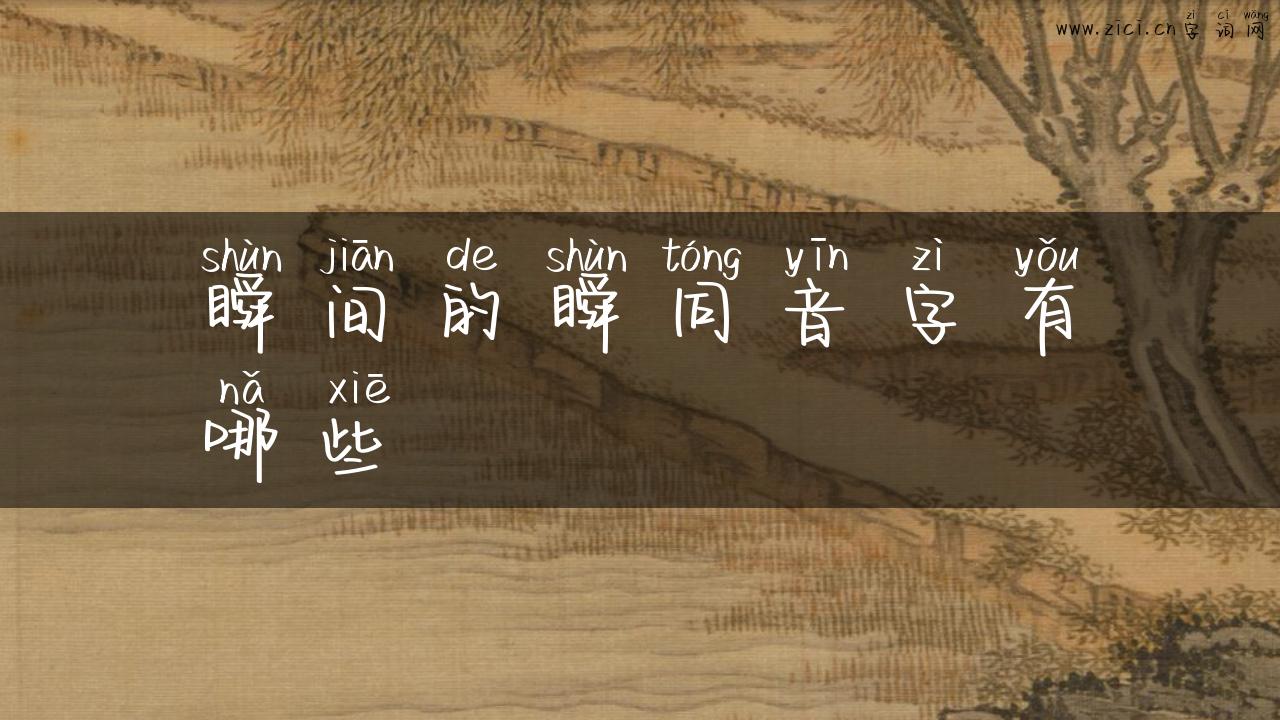 zì cí wǎng
www.zici.cn字词网
shùn jiān de shùn tóng yīn zì yǒu
瞬间的瞬同音字有
nǎ xiē
哪些